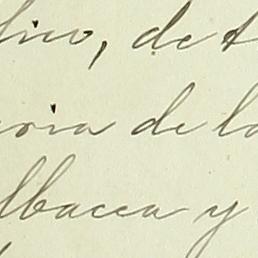 livo, de t
oria de la
lbacea y